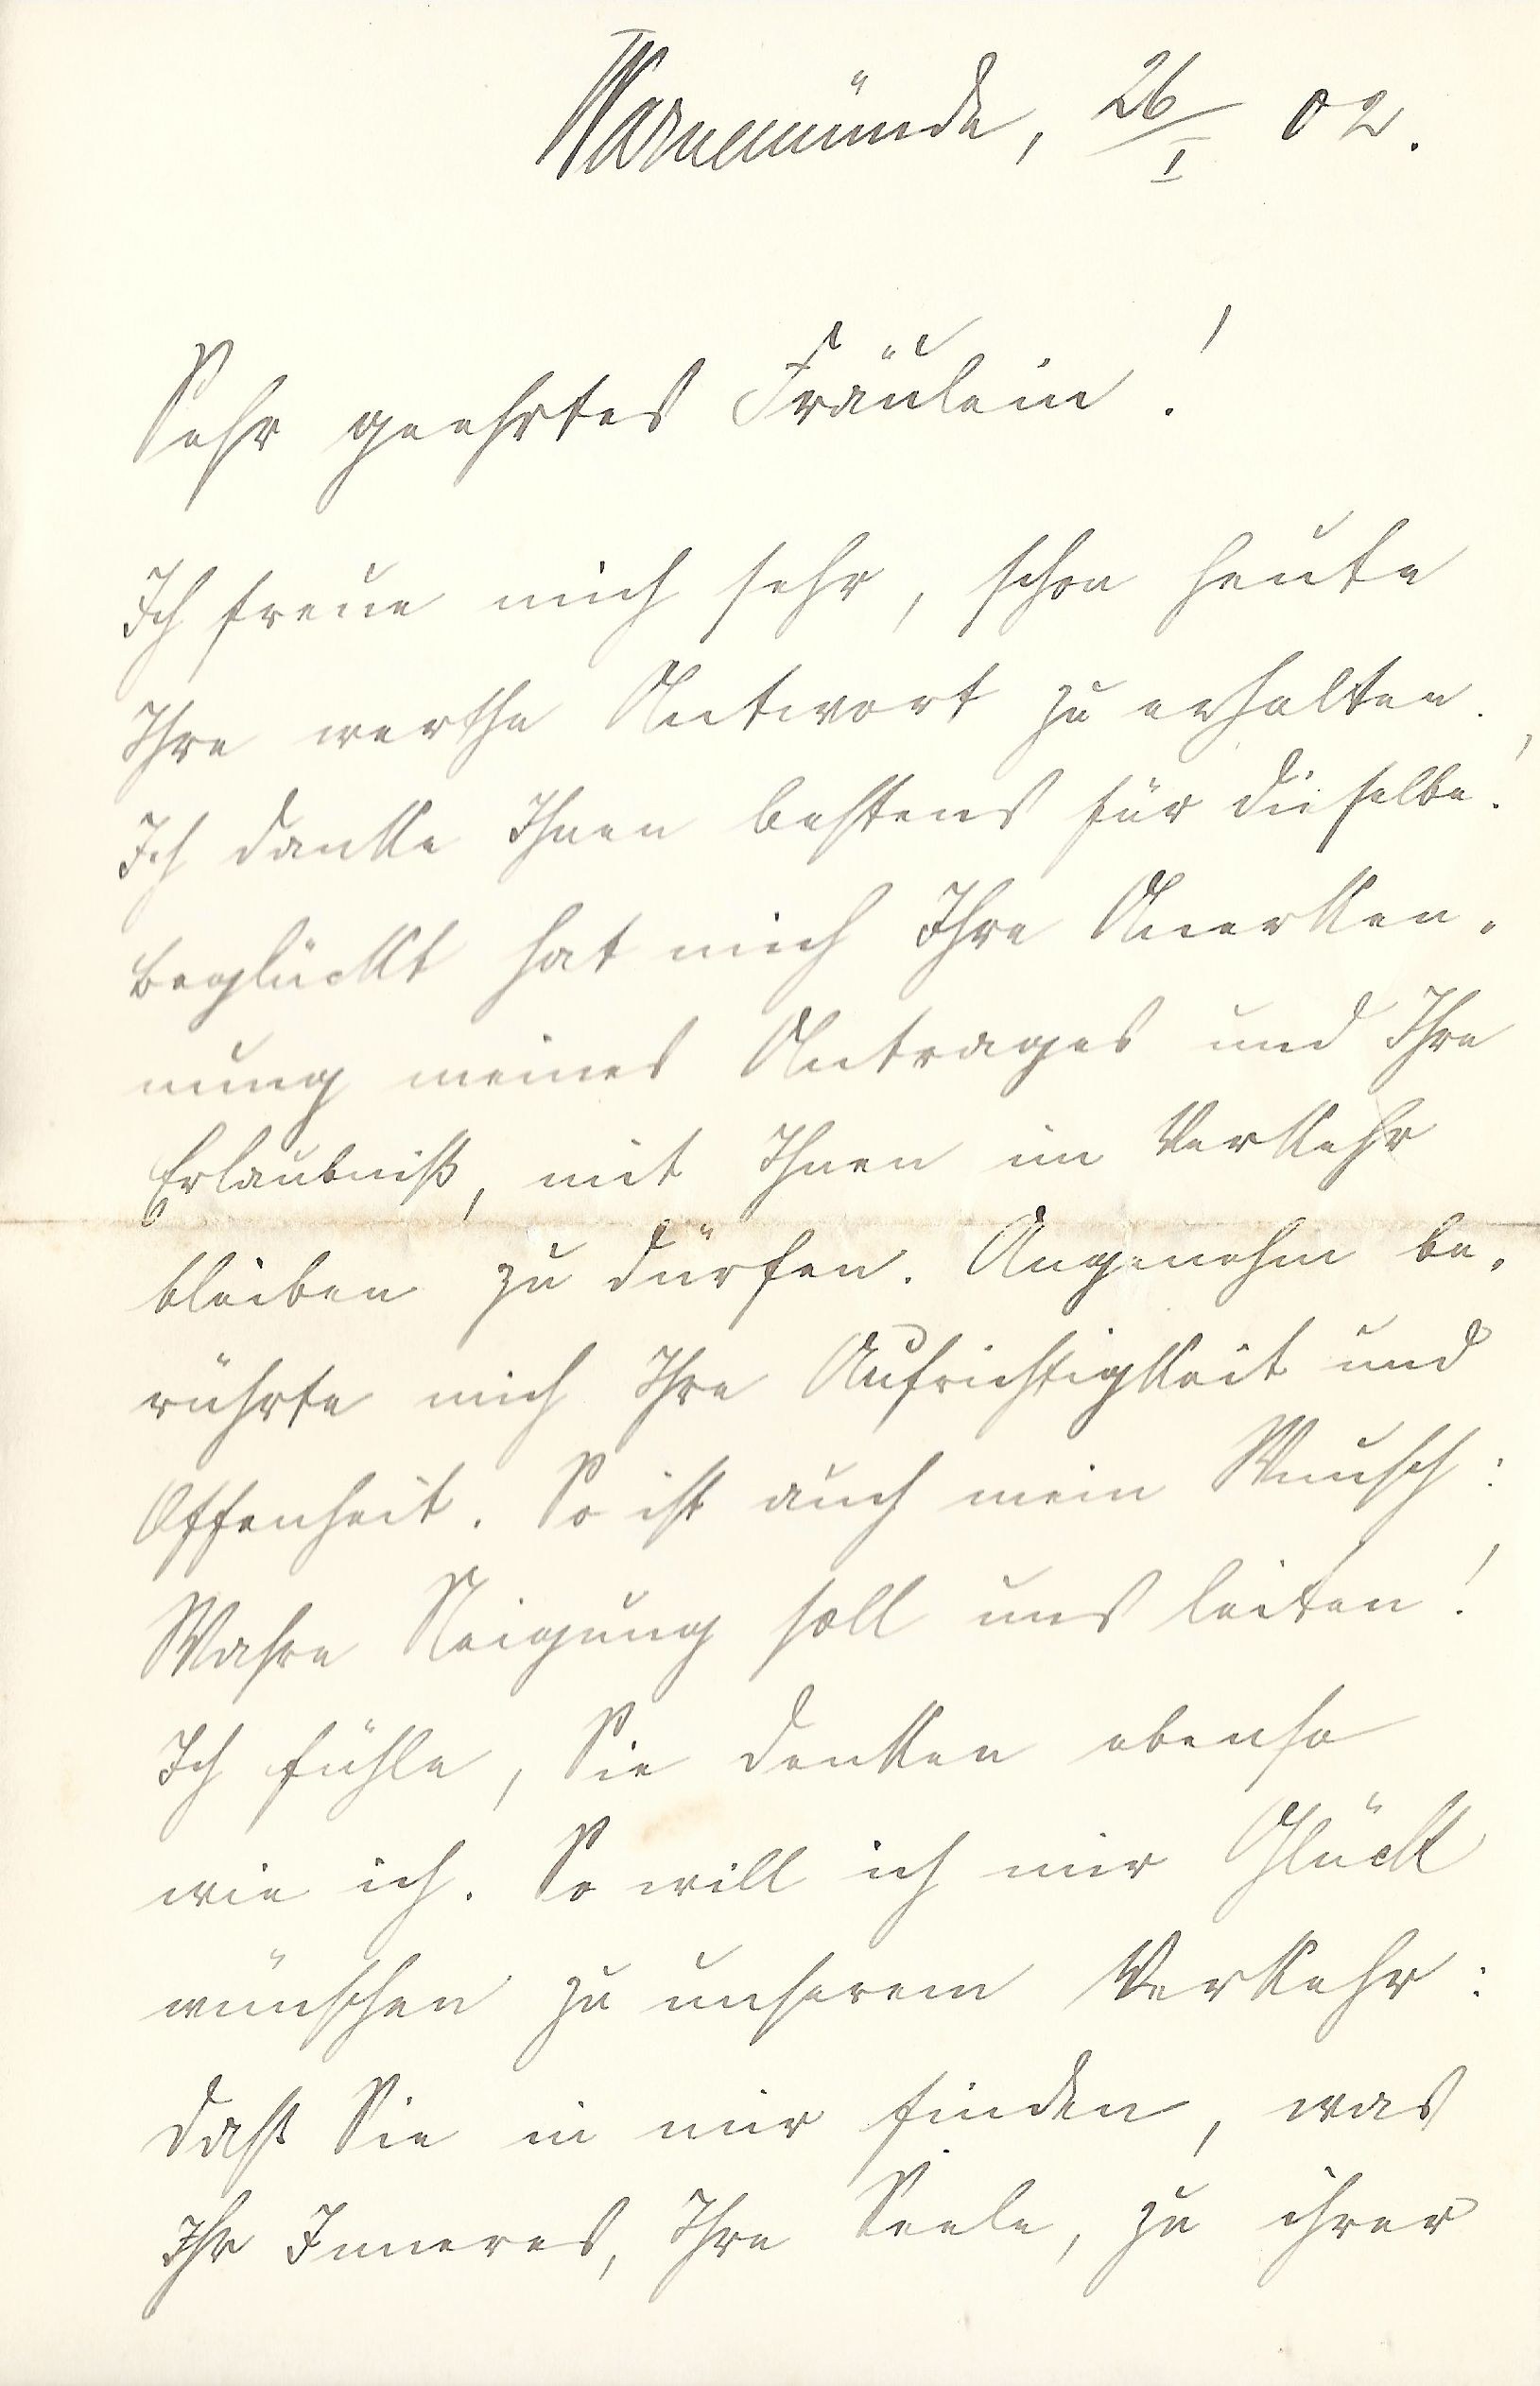 Warnemünde, 26/I 02.
Sehr geehrtes Fräulein!
Ich freue mich sehr, schon heute
Ihre werthe Antwort zu erhalten.
Ich danke Ihnen bestens für dieselbe!
Beglückt hat mich Ihre Anerken-
nung meines Antrages und Ihre
Erlaubniß, mit Ihnen im Verkehr
bleiben zu dürfen. Angenehm be-
rührte mich Ihre Aufrichtigkeit und
Offenheit. So ist auch mein Wunsch:
Wahre Neigung soll uns leiten!
Ich fühle, Sie denken ebenso
wie ich. So will ich mir Glück
wünschen zu unserem Verkehr:
daß Sie in mir finden, was
Ihr Inneres, Ihre Seele, zu ihrer